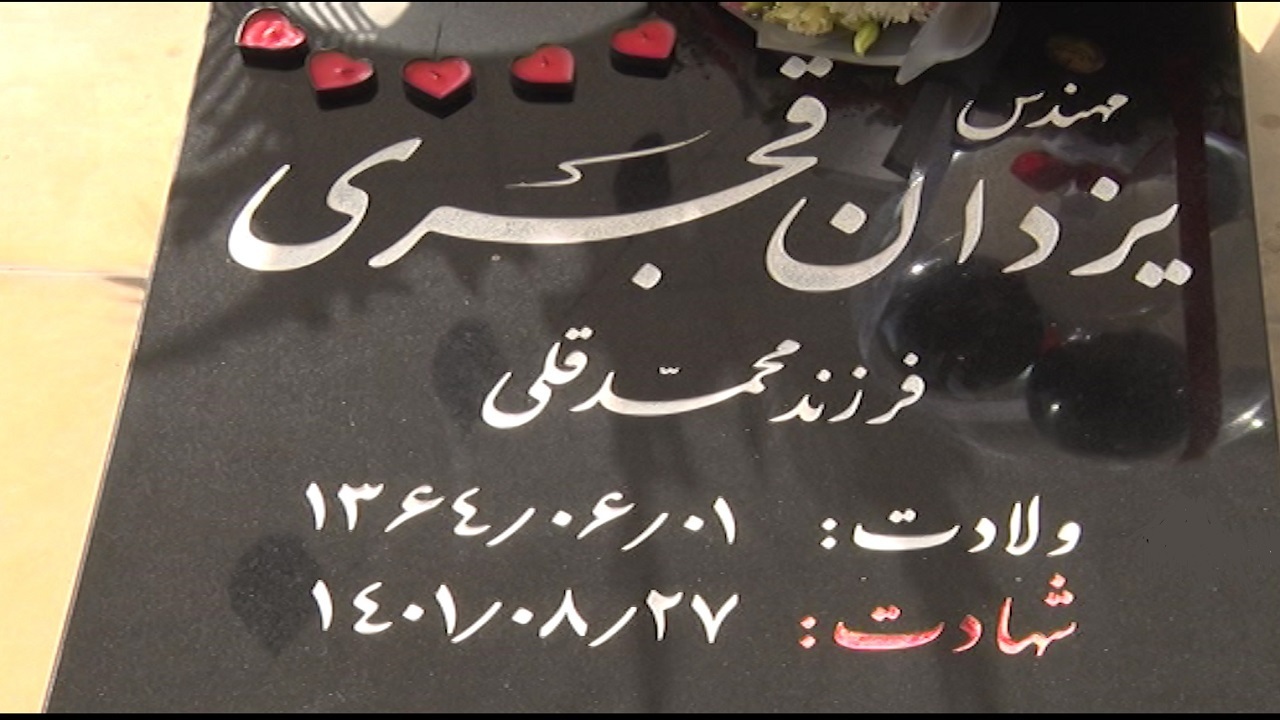 مهندس
یزدان قجری
فرزند محمّد قلی
ولادت: ۱۳۶۴/۰۶/۰۱
شهادت: ۱۴۰۱/۰۸/۲۷